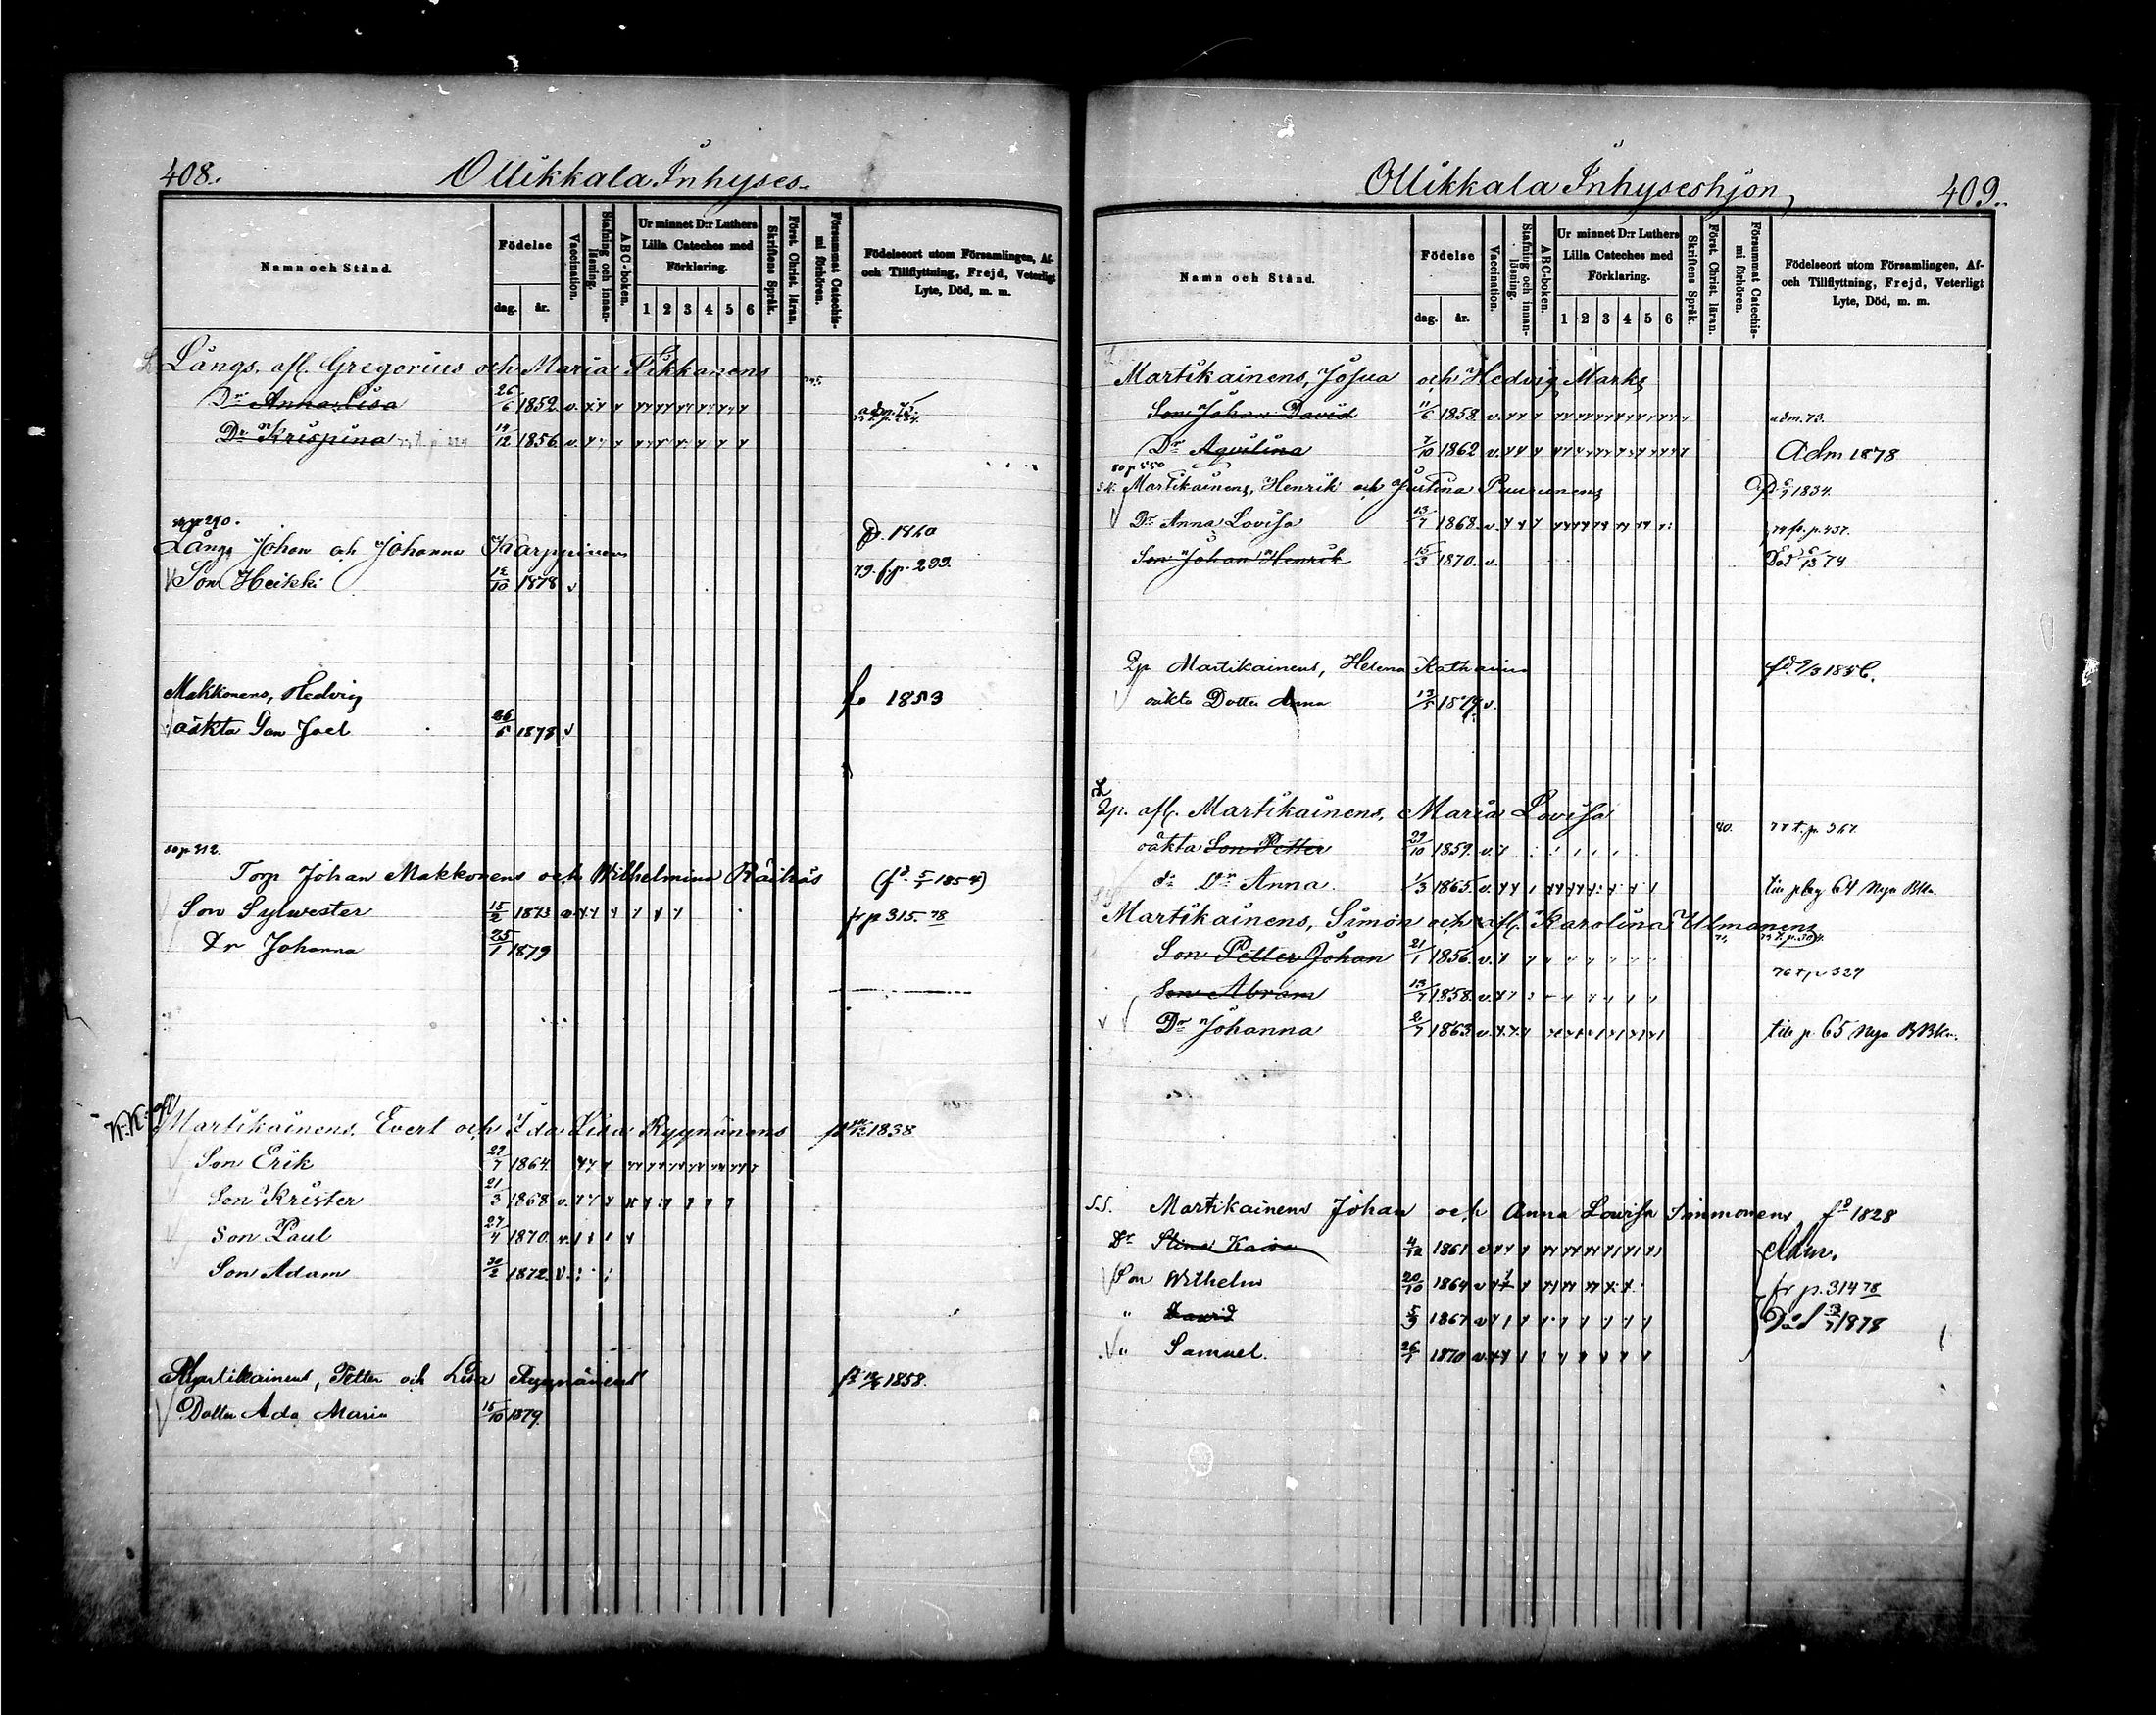 408.
Ollikkala Inhyses.
Namn och Stånd.
Födelse
dag. år.
Vaccination.
Stafning och innanläsning.
ABC-boken.
Ur minnet D:r Luthers Lilla Cateches med Förklaring.
1 2 3 4 5 6
Skriftens Språk.
Först. Christ. läran.
Försummat Catechismi förhören.
Födelseort utom Församlingen, Af- och Tillflyttning, Frejd, Veterligt Lyte, Död, m. m.
Långs. afl. Gregorius och Maria Pikkanens
Dr Anna Lisa 26/6 1852 v.
Dr Krispina 1856 v.
80 p 290.
Långs Johan och Johanna Karppinens
Son Heikki 12/10 1878 v 79. f. p. 299.
Makkonens, Hedvig 1853
oäkta Son Joel 26/6 1878 v
80 p 312.
Torp Johan Makkonens och Wilhelmina Räihäs (fd. 5/1 1854)
Son Sylwester 15/2 1873 v fr p 315 78
Dr Johanna 25/1 1879
K.K. afl
Martikainens, Evert och Ida Lisa Ryynänens 1838
Son Erik 29/7 1864
Son Krister 21/3 1868 v.
Son Paul 27/4 1870 v.
Son Adam 30/2 1872 v.
Martikainens, Petter och Lisa Ryynänens 1858.
Dotter Ada Maria 15/10 1879.
Ollikkala Inhyseshjon,
409.
Namn och Stånd.
Födelse
dag. år.
Vaccination.
Stafning och innanläsning.
ABC-boken.
Ur minnet D:r Luthers Lilla Cateches med Förklaring.
1 2 3 4 5 6
Skriftens Språk.
Först. Christ. läran.
Försummat Catechismi förhören.
Födelseort utom Församlingen, Af- och Tillflyttning, Frejd, Veterligt Lyte, Död, m. m.
Martikainens, Josua och Hedvig Marks
Son Johan David 11/6 1858 v. adm. 73.
Dr Aqvilina 7/10 1862 v. Adm 1878
80 p 550
Martikainens, Henrik och Justina Puurunens 1834.
Dr Anna Lovisa 13/7 1868 v. 74 fr. p. 437.
Son Johan Henrik 15/3 1870 v. Död 74
Qp Martikainens, Helena Katharina 1856.
oäkta Dotter Anna 13/5 1879 v.
Qp. afl. Martikainens, Maria Lovisa
oäkta Son Petter 29/10 1859 v. 77 t. p. 367.
do Dr Anna 1/3 1865 v. till pag 64 Nya Bkn.
Martikainens, Simon och afl. Karolina Ulmanens
Son Petter Johan 21/1 1856 v.
Son Abram 13/7 1858 v. 76 t p 327
Dr Johanna 2/7 1863 v. till p 65 Nya BBkn.
S.S. Martikainens Johan och Anna Lovisa Immonens, fd 1828
Dr Stina Kaisa 1861 v Adm.
Son Wilhelm 20/10 1864 v fr p. 314 78
" David 5/9 1867 v Död 1878
" Samuel. 26/7 1870 v.